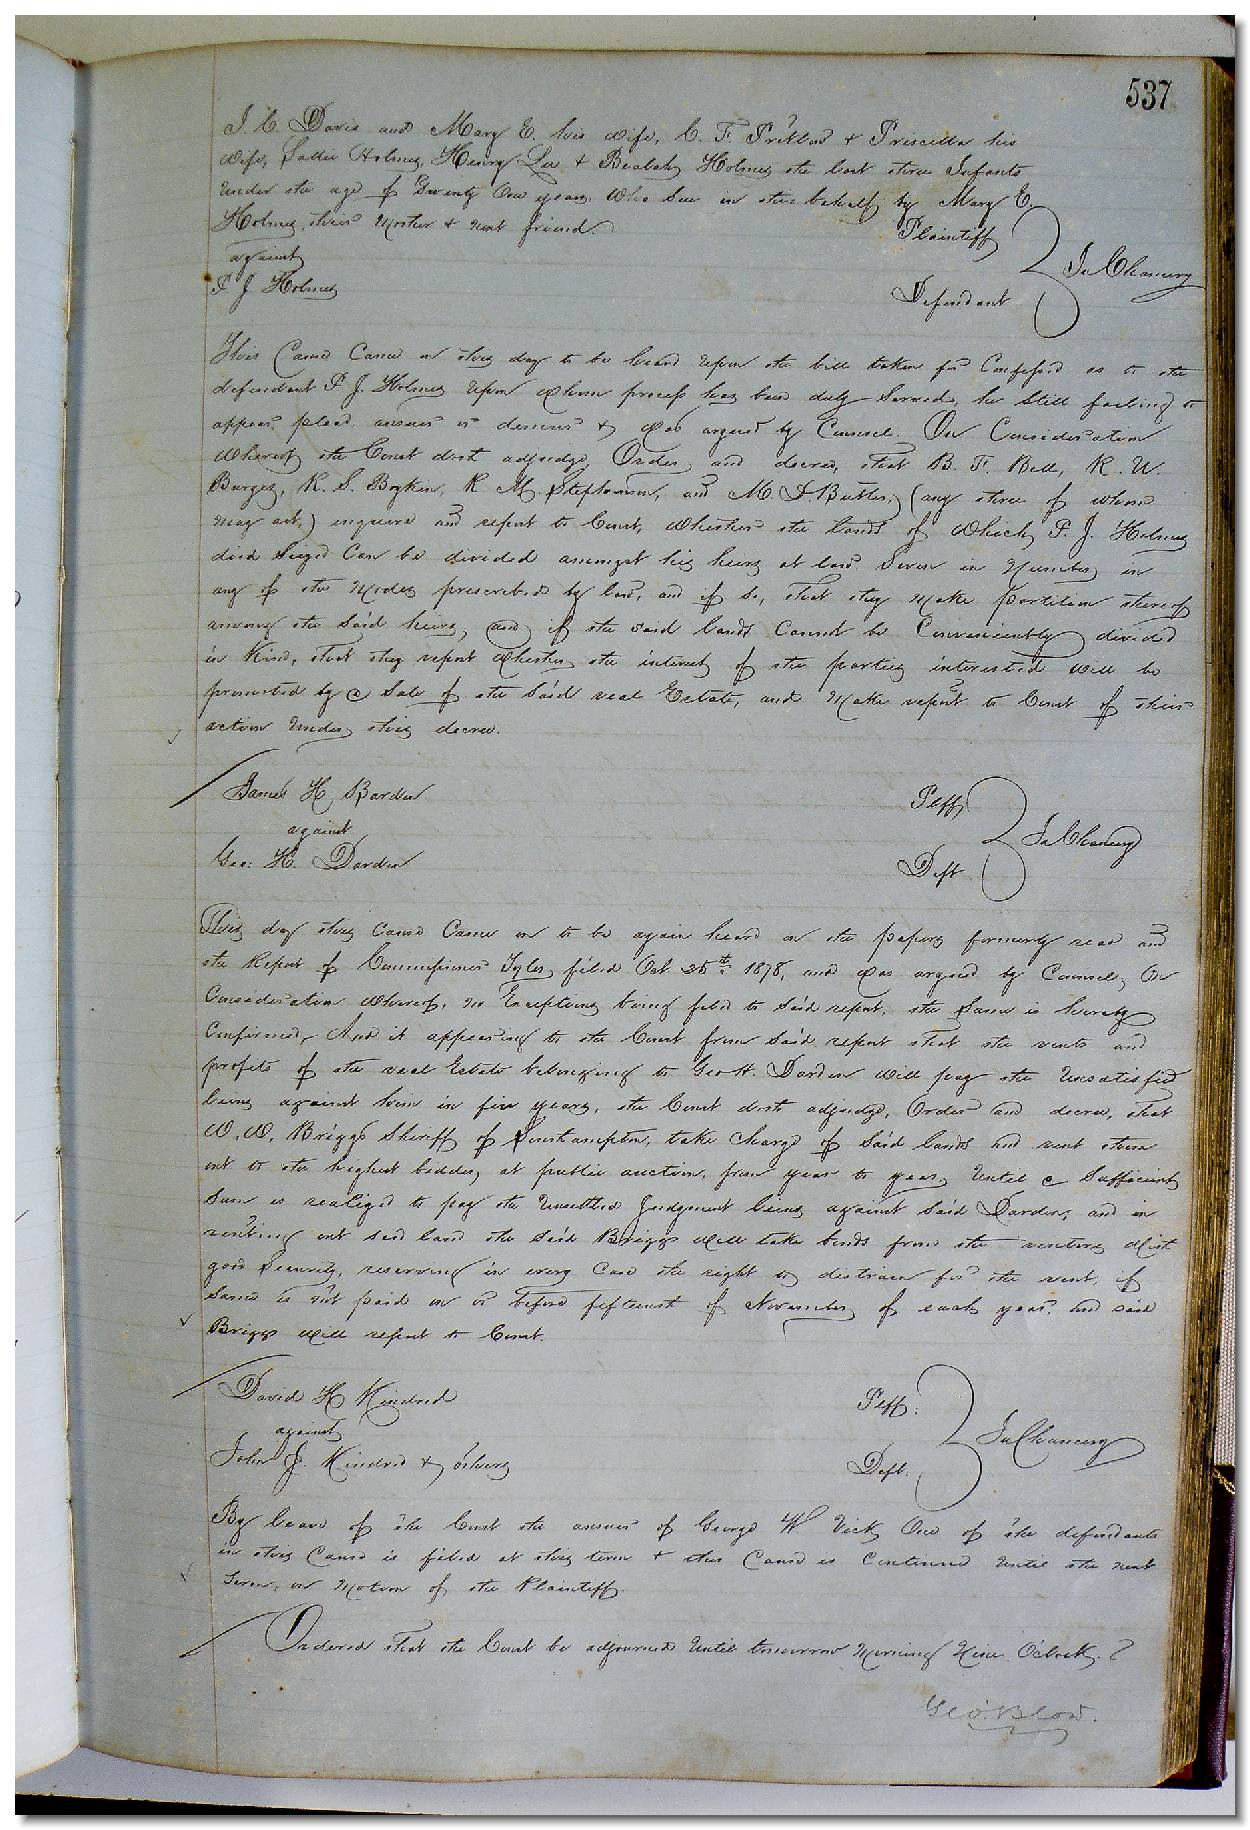 537
J. C. Davis and Mary E. his wife, C. F. Pretlow & Priscilla his
wife, Sallie Holmes, Henry Lee & Beulah Holmes the last three Infants
under the age of Twenty One years. Who Sue in their behalf by Mary E.
Holmes, their Mother & next friend.
Plaintiff
against
In Chancery
P J Holmes
Defendant
This Cause Came on this day to be heard Upon the bill taken for Confessed as to the
defendant P. J. Holmes Upon whom process has been duly Served, he Still failing to
appear, plead, answer or demur & was argued by Counsel. On Consideration
Whereof the Court doth adjudge, Order, and decree, that B. F. Bell, R. W.
Burges, R. S. Boykin, R M Stephenson, and M. D. Butler, (any three of whom
may act,) enquire and report to Court, Whether the lands of which P. J. Holmes
died Seized Can be divided amongst his heirs at law Seven in Number, in
any of the Modes prescribed by law, and if so, that they Make partition thereof
among the Said heirs, and if the said lands Cannot be Conveniently divided
in Kind, that they report Whether the interest of the parties interested will be
promoted by a Sale of the Said real Estate, and Make report to Court of their
action Under this decree.
James H. Barden
Plff
against
In Chancery
Geo: H. Darden
Deft
This day this Cause Came on to be again heard on the papers formerly read and
the Report of Commissioner Tyler, filed Oct 25th 1878, and was argued by Counsel, On
Consideration Whereof, no Exceptions being filed to Said report, the Same is hereby
Confirmed, And it appearing to the Court from Said report that the rents and
profits of the real Estate belonging to Geo H. Darden Will pay the Unsatisfied
liens against him in five years, the Court doth adjudge, Order and decree, that
W. W. Briggs Sheriff of Southampton, take Charge of Said lands and rent them
out to the highest bidder, at public auction, from year to year, Until a Sufficient
Sum is realized to pay the Unsettled Judgment liens against Said Darden, and in
renting out said land the Said Briggs Will take bonds from the renters With
good Security, reserving in every Case the right to distrain for the rent, if
Same is not paid on or before fifteenth of November of each year, and said
Briggs Will report to Court.
David H Kindred
Plff:
against
In Chancery
John J. Kindred & others
Deft.
By leave of the Court the answer of George W Vick, One of the defendants
in this Cause is filed at this term & this Cause is Continued Until the next
Term, on Motion of the Plaintiff.
Ordered that the Court be adjourned Until tomorrow Morning Nine O'clock.
Geo. Blow.